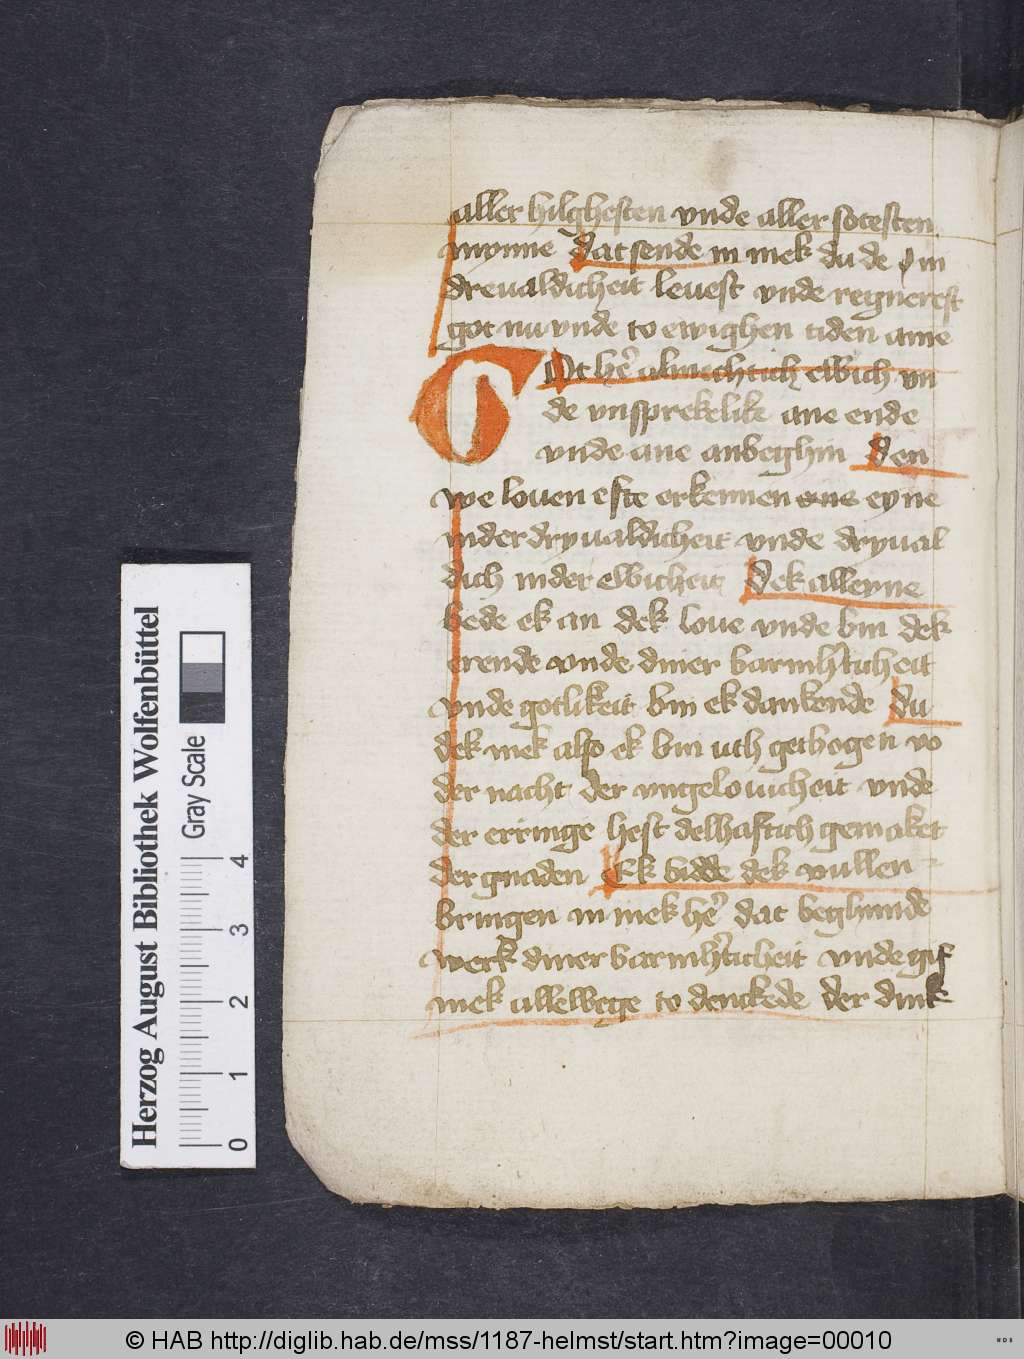 aller hilghesten vnde aller sotesten
mynne Dat sende in mek du de in
dreualdicheit leuest vnde regnerest
got nu vnde to ewighen tiden ame
GOt he᷒ almechtich ewich vn
de vnsprekelik ane ende
vnde ane anbeghin Den
we louen efte erkennen eyne
inder dryualdicheit vnde dryual
dich inder ewicheit Dek alleyne
bede ek an dek loue vnde bin dek
erende vnde diner barmh᷒ticheit
vnde gotlikeit bin ek dankende du
dek mek also ek bin uth gethogen vo
der nacht der vngelouicheit vnde
der erringe hest delhaftich gemaket
der gnaden Ek bidde dek vullen
bringen in mek he᷒ dat beghunde
werk diner barmh᷒ticheit vnde gif
mek allewege to denckede der dink
Herzog August Bibliothek Wolfenbüttel
Gray Scale
0 1 2 3 4
© HAB http://diglib.hab.de/mss/1187-helmst/start.htm?image=00010
WDB